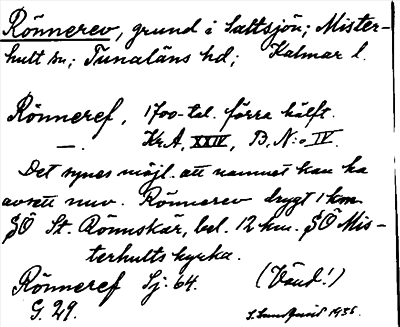 Rönnerev, grund i Saltsjön; Mister-
hult sn; Tunaläns hd; Kalmar l.
Rönneref, 1700-tal. förra hälft.
—. Kr.A, XXIV, B, N:o IV.
Det synes möjl. att namnet kan ha
avsett nuv. Rönnerev drygt 1 km
SÖ St. Rönnskär, bel. 12 km. SÖ Mis-
terhults kyrka.
Rönneref Sj. 64. (Vänd!)
G. 29. 1936.